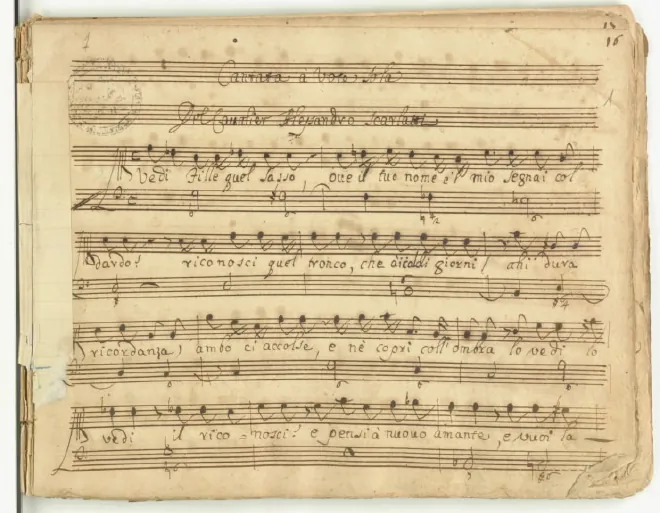 15
16
1
Cantata à Voce Sola
1
Del Cavalier Alessandro Scarlatti
Vedi Fille quel sasso ove il tuo nome e'l mio segnai col
dardo? riconosci quel tronco, che di giorni! ahi dura
ricordanza! ambo ci accolse, e nè coprì coll'ombra lo vedi lo
vedi il rico=nosci? e pensi à nuovo amante, e vuoi la